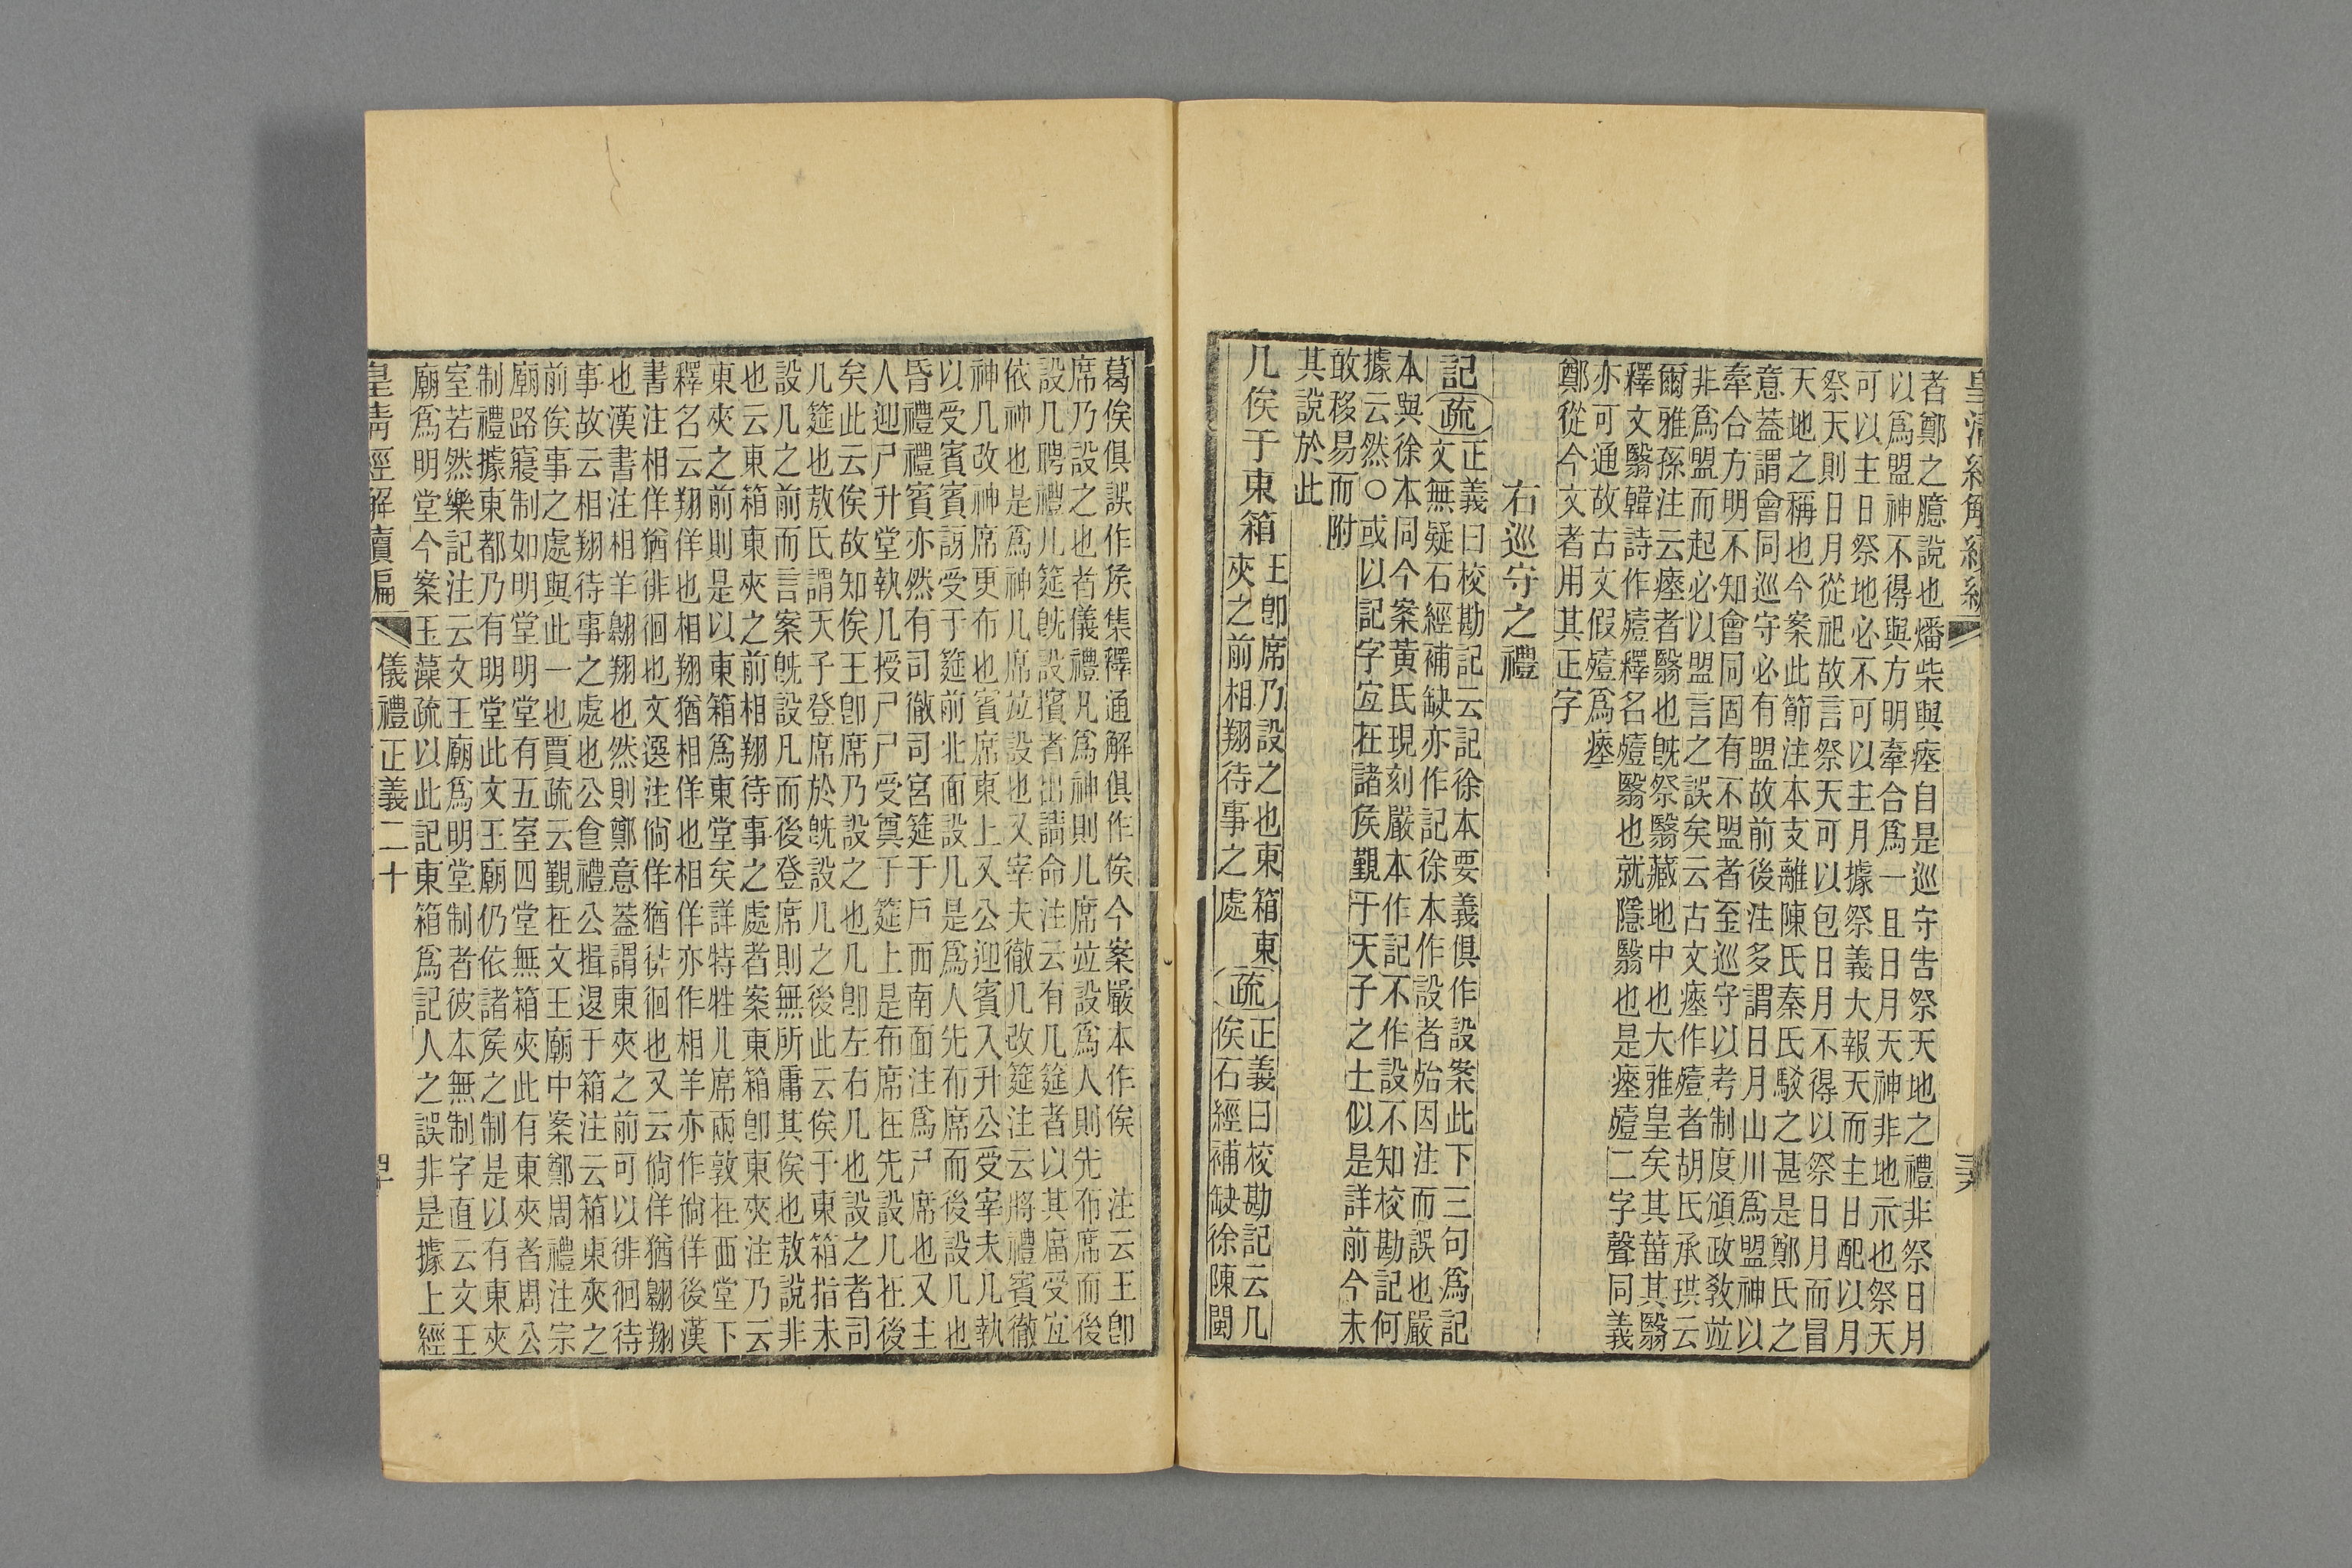 皇清經解續編
者鄭之臆說也燔柴與瘞自是巡守告祭天地之禮非祭日月
以爲盟神不得與方明牽合爲一且日月天神非地示也祭天
可以主日祭地必不可以主月據祭義大報天而主日配以月
祭天則日月從祀故言祭天可以包日月不得以祭日月而冒
天地之稱也今案此節注本支離陳氏秦氏駁之甚是鄭氏之
意蓋謂會同巡守必有盟故前後注多謂日月山川爲盟神以
牽合方明不知會同固有不盟者至巡守以考制度頒政敎竝
非爲盟而起必以盟言之誤矣云古文瘞作殪者胡氏承珙云
爾雅孫注云瘞者翳也旣祭翳藏地中也大雅皇矣其菑其翳
釋文翳韓詩作殪釋名殪翳也就隱翳也是瘞殪二字聲同義
亦可通故古文假殪爲瘞
鄭從今文者用其正字
右巡守之禮
記疏正義曰校勘記云記徐本要義俱作設案此下三句爲記
文無疑石經補缺亦作記徐本作設者始因注而誤也嚴
本與徐本同今案黃氏現刻嚴本作記不作設不知校勘記何
據云然○或以記字宜在諸侯覲于天子之士似是詳前今未
敢移易而附
其說於此
几俟于東箱
王卽席乃設之也東箱東
夾之前相翔待事之處
疏
正義曰校勘記云几
俟石經補缺徐陳閩
葛俟俱誤作矦集釋通解俱作俟今案嚴本作俟 注云王卽
席乃設之也者儀禮凡爲神則几席竝設爲人則先布席而後
設几聘禮几筵旣設擯者出請命注云有几筵者以其廟受宜
依神也是爲神几席竝設也又宰夫徹几改筵注云將禮賓徹
神几改神席更布也賓席東上又公迎賓入升公受宰夫几執
以受賓賓訝受于筵前北面設几是爲人先布席而後設几也
昏禮禮賓亦然有司徹司宮筵于戶西南面注爲尸席也又主
人迎尸升堂執几授尸尸受奠于筵上是布席在先設几在後
矣此云俟故知俟王卽席乃設之也几卽左右几也設之者司
几筵也敖氏謂天子登席於旣設几之後此云俟于東箱指未
設几之前而言案旣設几而後登席則無所庸其俟也敖說非
也云東箱東夾之前相翔待事之處者案東箱卽東夾注乃云
東夾之前則是以東箱爲東堂矣詳特牲几席兩敦在西堂下
釋名云翔佯也相翔猶相佯也相佯亦作相羊亦作倘佯後漢
書注相佯猶徘徊也文選注倘佯猶徘徊也又云倘佯猶翱翔
也漢書注相羊翱翔也然則鄭意蓋謂東夾之前可以徘徊待
事故云相翔待事之處也公食禮公揖退于箱注云箱東夾之
前俟事之處與此一也賈疏云覲在文王廟中案鄭周禮注宗
廟路寢制如明堂明堂有五室四堂無箱夾此有東夾者周公
制禮據東都乃有明堂此文王廟仍依諸侯之制是以有東夾
室若然樂記注云文王廟爲明堂制者彼本無制字直云文王
廟爲明堂今案玉藻疏以此記東箱爲記人之誤非是據上經
皇清經解續編 儀禮正義二十